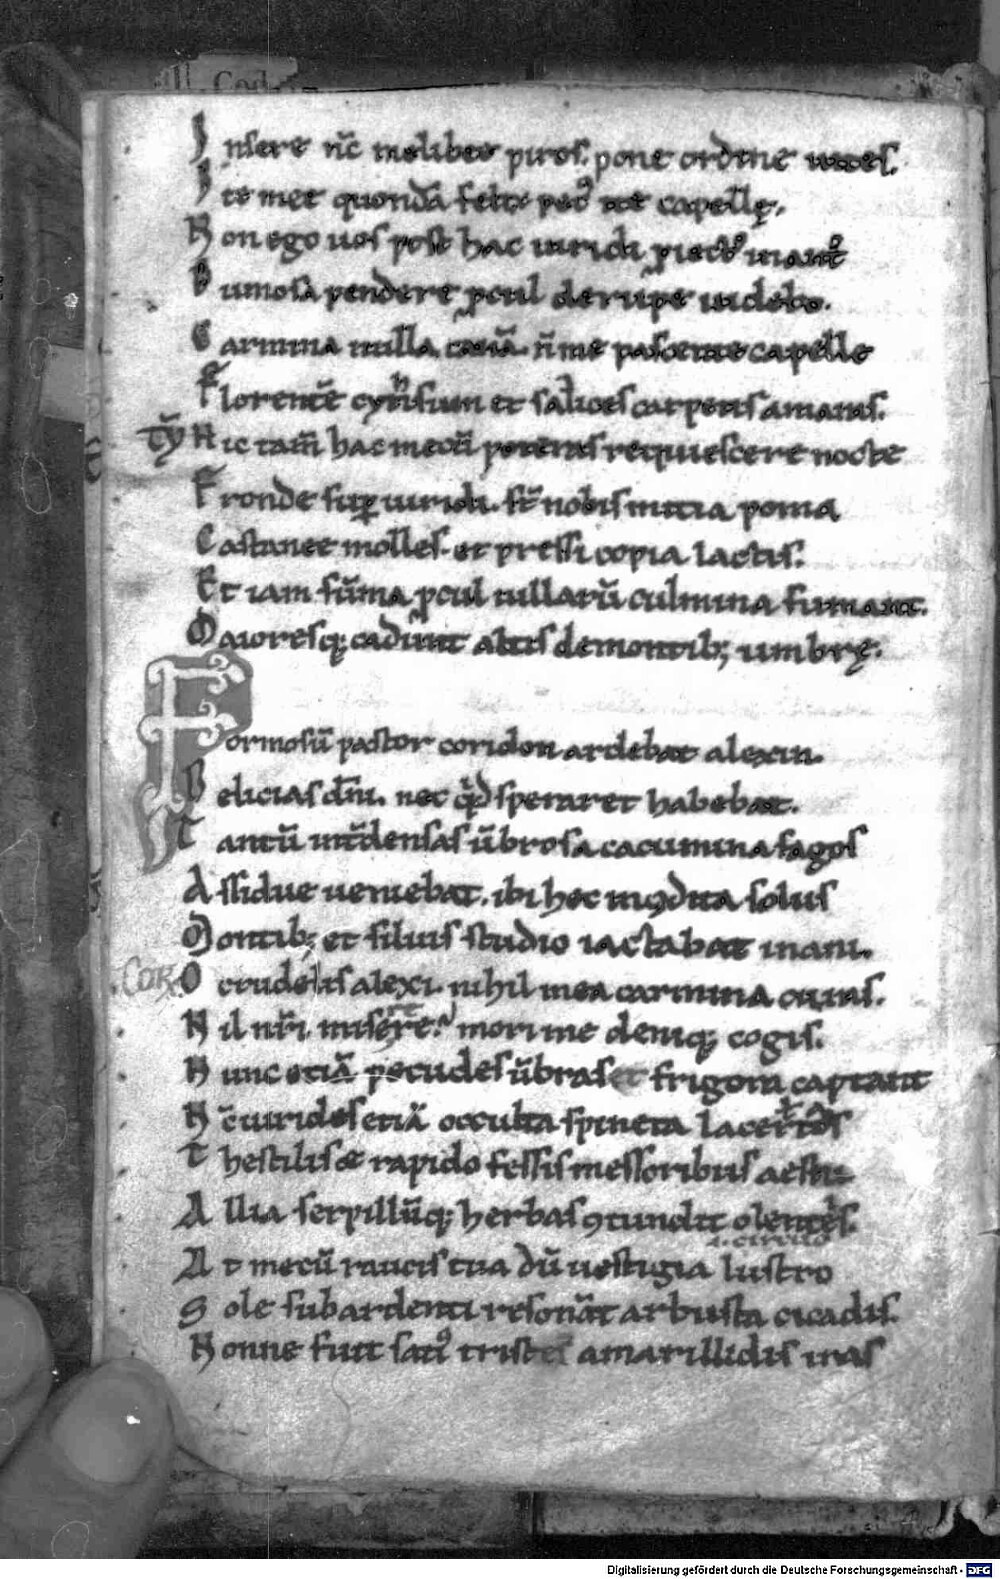 Codex
I nsere nc̄ melibee piros. pone ordine uites.
I te meę quondā felix pec' ite capellę.
N on ego uos post hac uiridi p̄iectꝰ in antro
D umosa pendere ꝓcul de rupe uidebo.
C armina nulla canā. n̄ me pascente capelle
F lorentē cythisum et salices carpetis amaras.
TY H ic tam̄ hac mecū poteras requiescere nocte
F ronde sup uiridi. st̄ nobis mitia poma
C astaneę molles. et pressi copia lactis.
E t iam sūma ꝓcul uillarū culmina fumant.
M aioresq; cadunt altis de montib; umbrę.
F ormosū pastor coridon ardebat alexin.
D elicias dn̄i. nec qd speraret habebat.
T antū int̄ densas ūbrosa cacumina fagos
A ssidue ueniebat. ibi hec incondita solus
M ontib; et siluis studio iactabat inani.
COR O crudelis alexi. nihil mea carmina curas.
N il nr̄i miserere. mori me deniq; cogis.
N unc etiā pecudes ūbras et frigora captant
N c̄ uirides etiā occulta spineta lacertos
T hestilis & rapido fessis messoribus aestu
A llia serpillūq; herbas ꝯtundit olentes.
.i. circuo
A t mecū raucis tua dū uestigia lustro
S ole sub ardenti resonāt arbusta cicadis.
N onne fuit satiꝰ tristes amarillidis iras
Digitalisierung gefördert durch die Deutsche Forschungsgemeinschaft - DFG